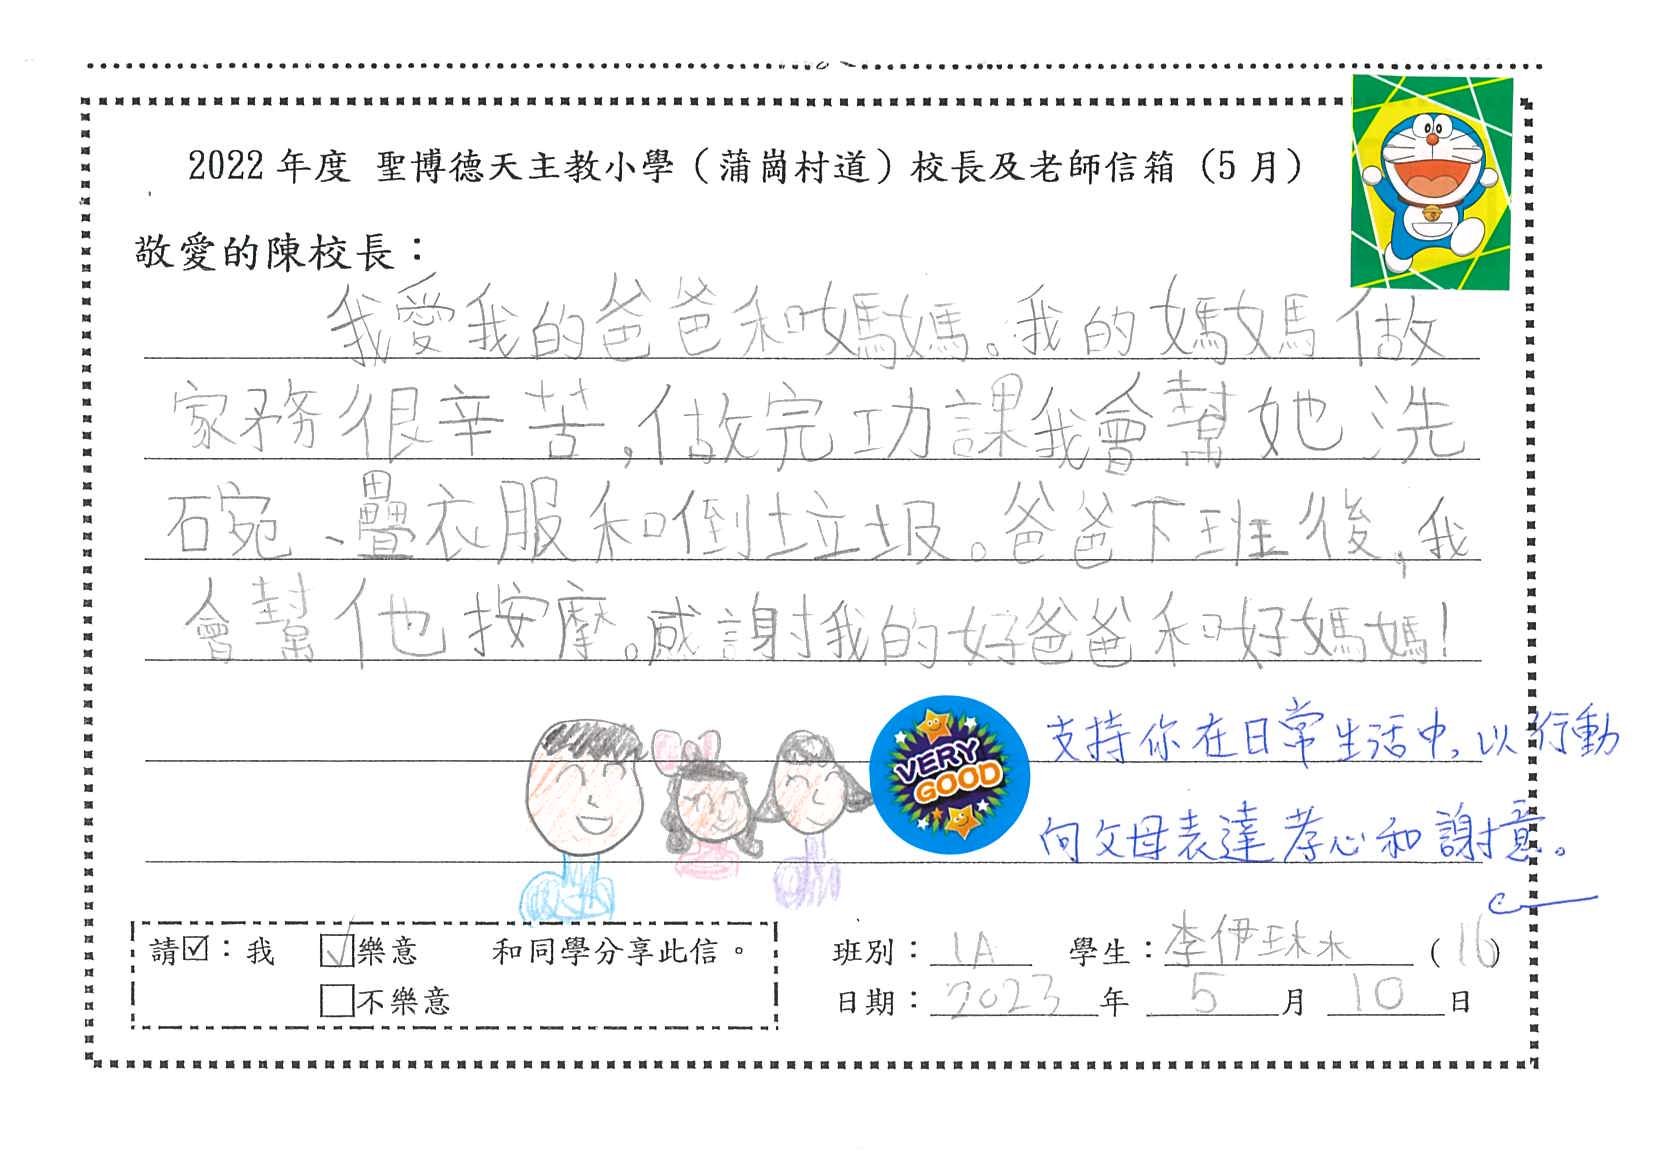 2022 年度 聖博德天主教小學（蒲崗村道）校長及老師信箱（5 月）
敬愛的陳校長：
我愛我的爸爸和媽媽。我的媽媽做
家務很辛苦，做完功課我會幫她洗
碗、疊衣服和倒垃圾。爸爸下班後，我
會幫他按摩。感謝我的好爸爸和好媽媽！
VERY
GOOD
支持你在日常生活中，以行動
向父母表達孝心和謝意。
請☑：我 ☑樂意 和同學分享此信。
□不樂意
班別：1A 學生：李伊琳 （16）
日期：2023 年 5 月 10 日